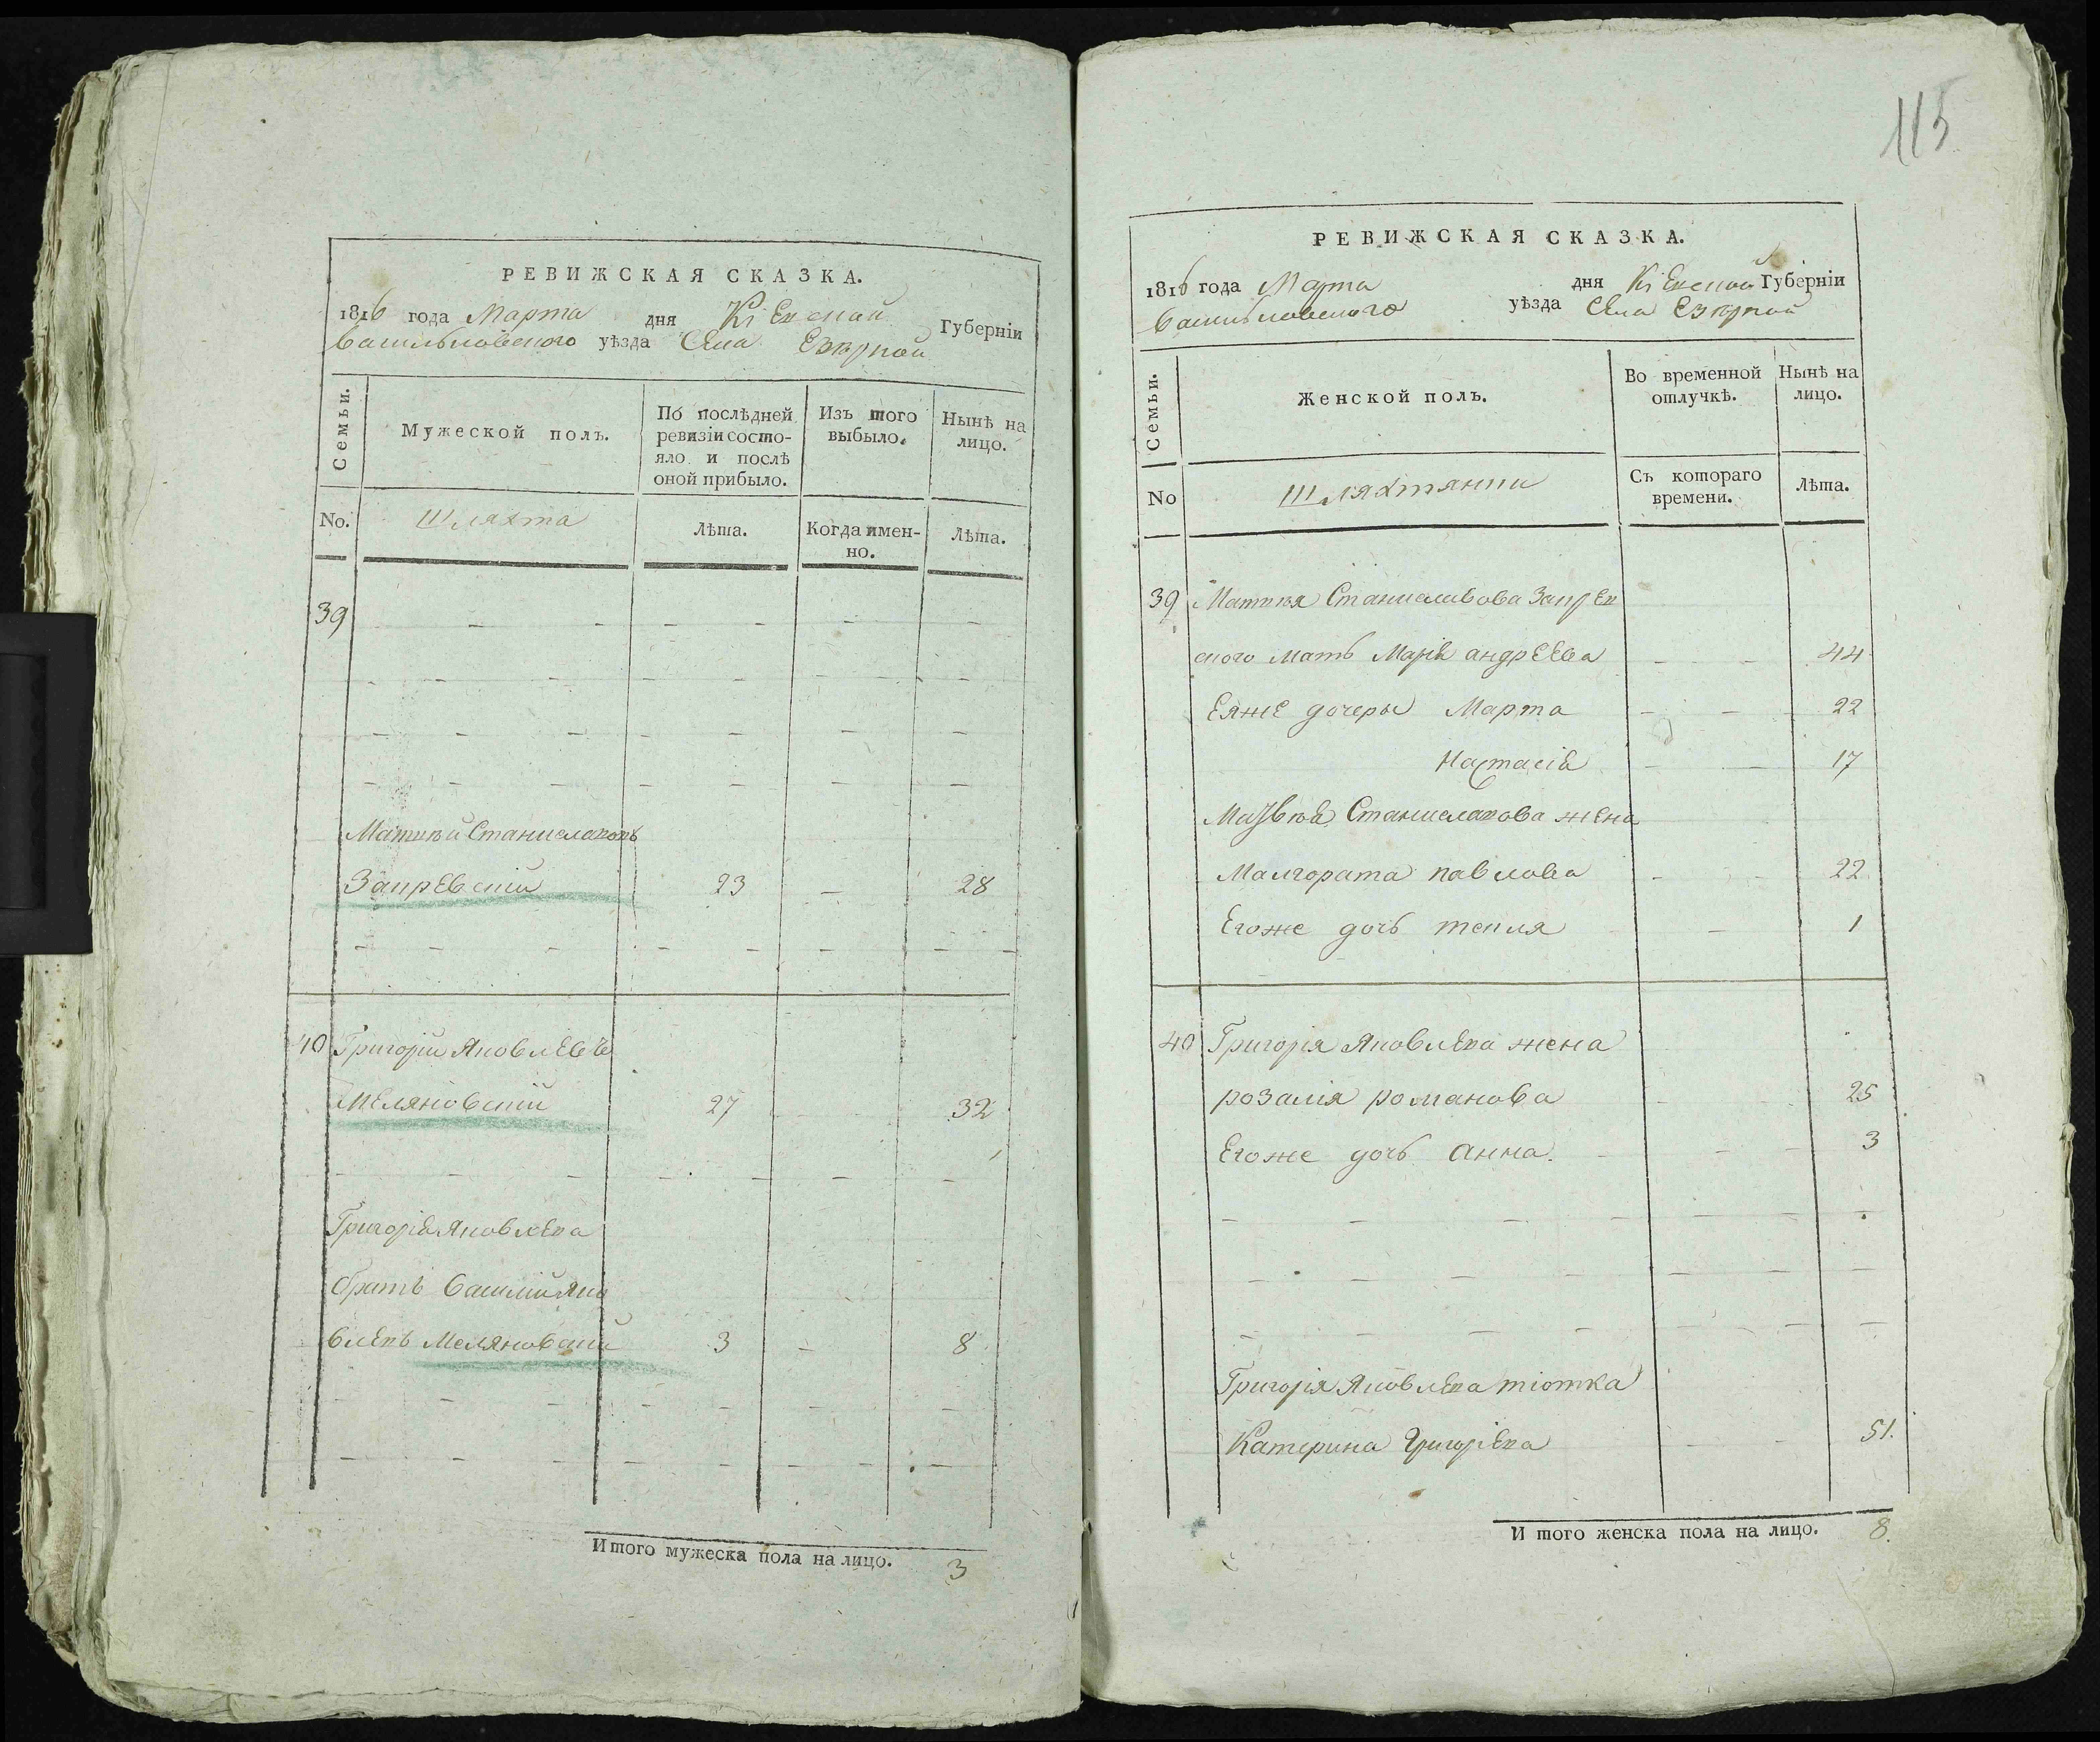 РЕВИЖСКАЯ СКАЗКА.
1816 года Марта дня Кіевской Губерніи
Васильковского уѣзда Села Езѣрной
Семьи.
Мужеской полъ.
По послѣдней ревизіи состояло и послѣ оной прибыло.
Изъ того выбыло.
Нынѣ на лицо.
No.
Шляхта
Лѣта.
Когда именно.
Лѣта.
39
Матвѣй Станиславовъ
23 28
40 Григорій Яковлевъ
Меляновскій 27 32
Григорія Яковлева
братъ Василій Яко
влевъ Меляновскій 3 8
Итого мужеска пола на лицо. 3
115
РЕВИЖСКАЯ СКАЗКА.
1816 года Марта дня Кіевской Губерніи
Васильковского уѣзда Села Езѣрной
Семьи.
Женской полъ.
Во временной отлучкѣ.
Нынѣ на лицо.
No
Шляхтянки
Съ котораго времени.
Лѣта.
39 Матвѣя Станиславова
ского мать Марія андреева 44
Еяже дочеры Марта 22
Настасія 17
Матвѣя Станиславова жена
Малгората павлова 22
Егоже дочь текля 1
40 Григорія Яковлева жена
розалія романова 25
Егоже дочь анна. 3
Григорія Яковлева тіотка
Катерина Григоріева 51.
И того женска пола на лицо. 8.